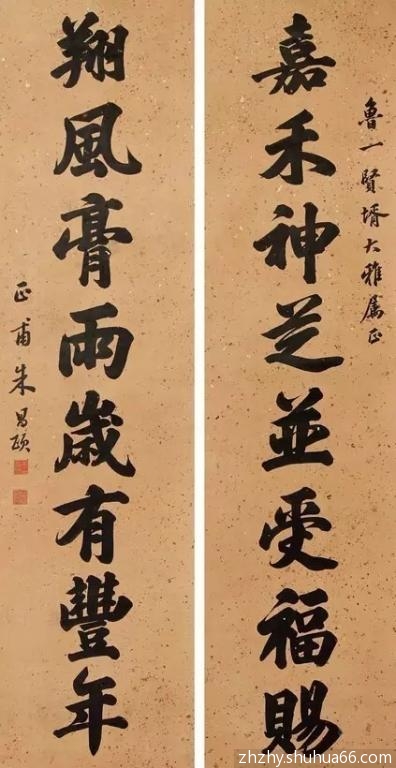 魯一賢壻大雅属正
嘉禾神芝並受福賜
翔風膏雨歲有豐年
正甫朱昌頤
zhzhy.shuhua66.com